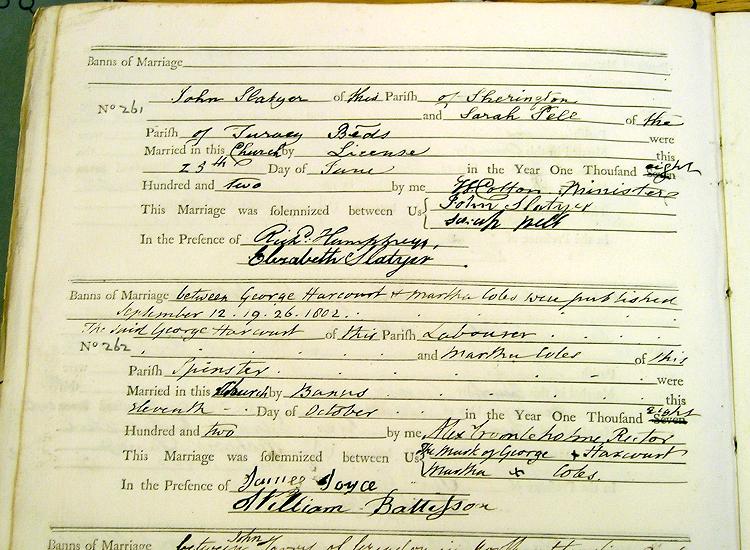 Banns of Marriage
No 261 John Slatyer of this Parish of Sherington
and Sarah Pell of the
Parish of Turvey Beds were
Married in this Church by License this
23th Day of June in the Year One Thousand Seven eight
Hundred and two by me W Cotton Minister
This Marriage was solemnized between Us John Slatyer
Sarah Pell
In the Presence of Richd. Humphreys,
Elizabeth Slatyer
Banns of Marriage between George Harcourt & Martha Coles were published
September 12. 19. 26. 1802.
The said George Harcourt of this Parish Labourer
No 262 and Martha Coles of this
Parish Spinster were
Married in this Church by Banns this
eleventh Day of October in the Year One Thousand Seven eight
Hundred and two by me, Alex Rector
This Marriage was solemnized between Us The Mark of George + Harcourt
Martha + Coles.
In the Presence of James Joyce
William Battisson
Banns of Marriage between John of in